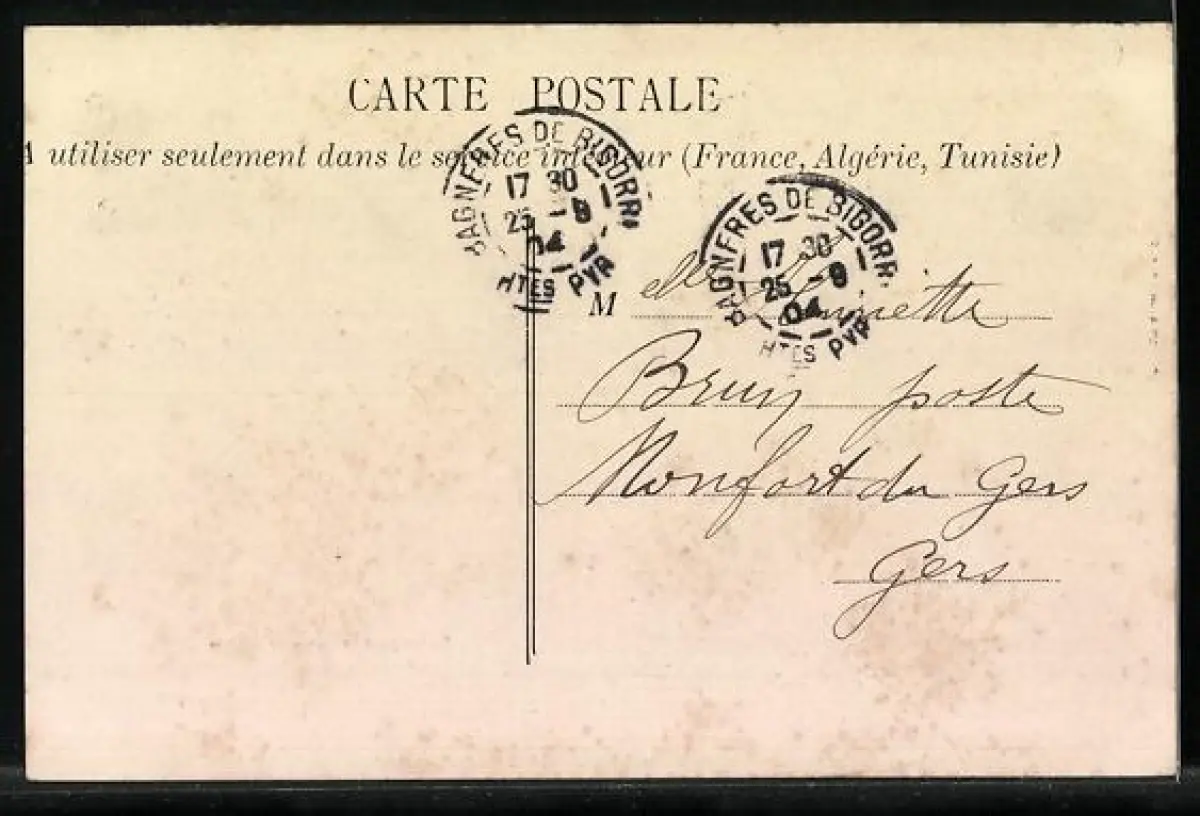 CARTE POSTALE
A utiliser seulement dans le service intérieur (France, Algérie, Tunisie)
BAGNERES DE BIGORR
17 30
25 -9
04
HTES PYR
BAGNERES DE BIGORR
17 30
25 -9
04
HTES PYR
M elle
Brun poste
Monfort du Gers
Gers